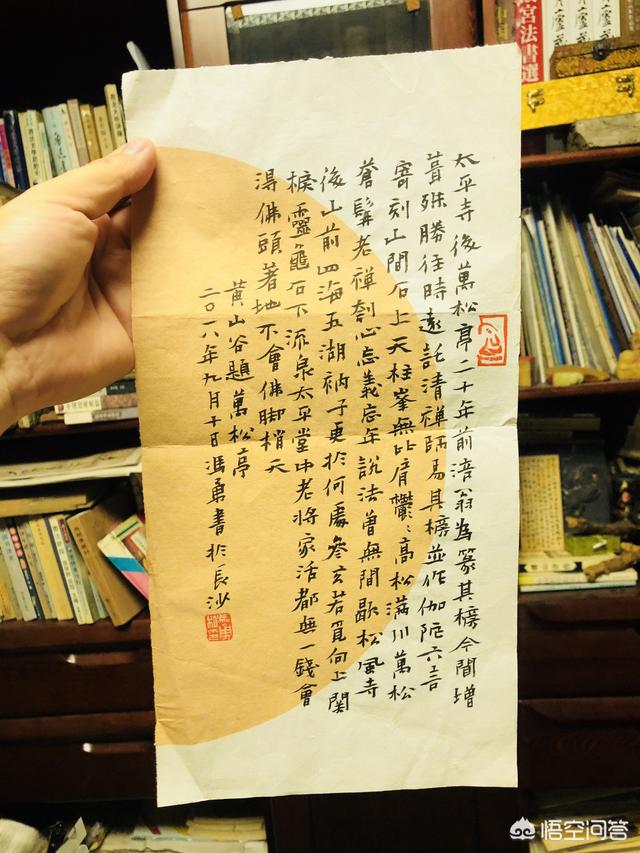 太平寺後萬松亭二十年前涪翁為篆其榜今間增
葺殊勝往時遠託清禪師易其榜並作伽陀六言
寄刻山間石上天柱峯無比肩鬱〻高松滿川萬松
蒼髯老禪刳心忘義忘年說法曾無間歇松風寺
後山前四海五湖衲子更於何處參玄若覓向上關
棙靈龜石下流泉太平堂中老將家活都無一錢會
得佛頭著地不會佛腳梢天
黃山谷題萬松亭
二〇一八年九月十日馮勇書於長沙
宮法書選
悟空问答